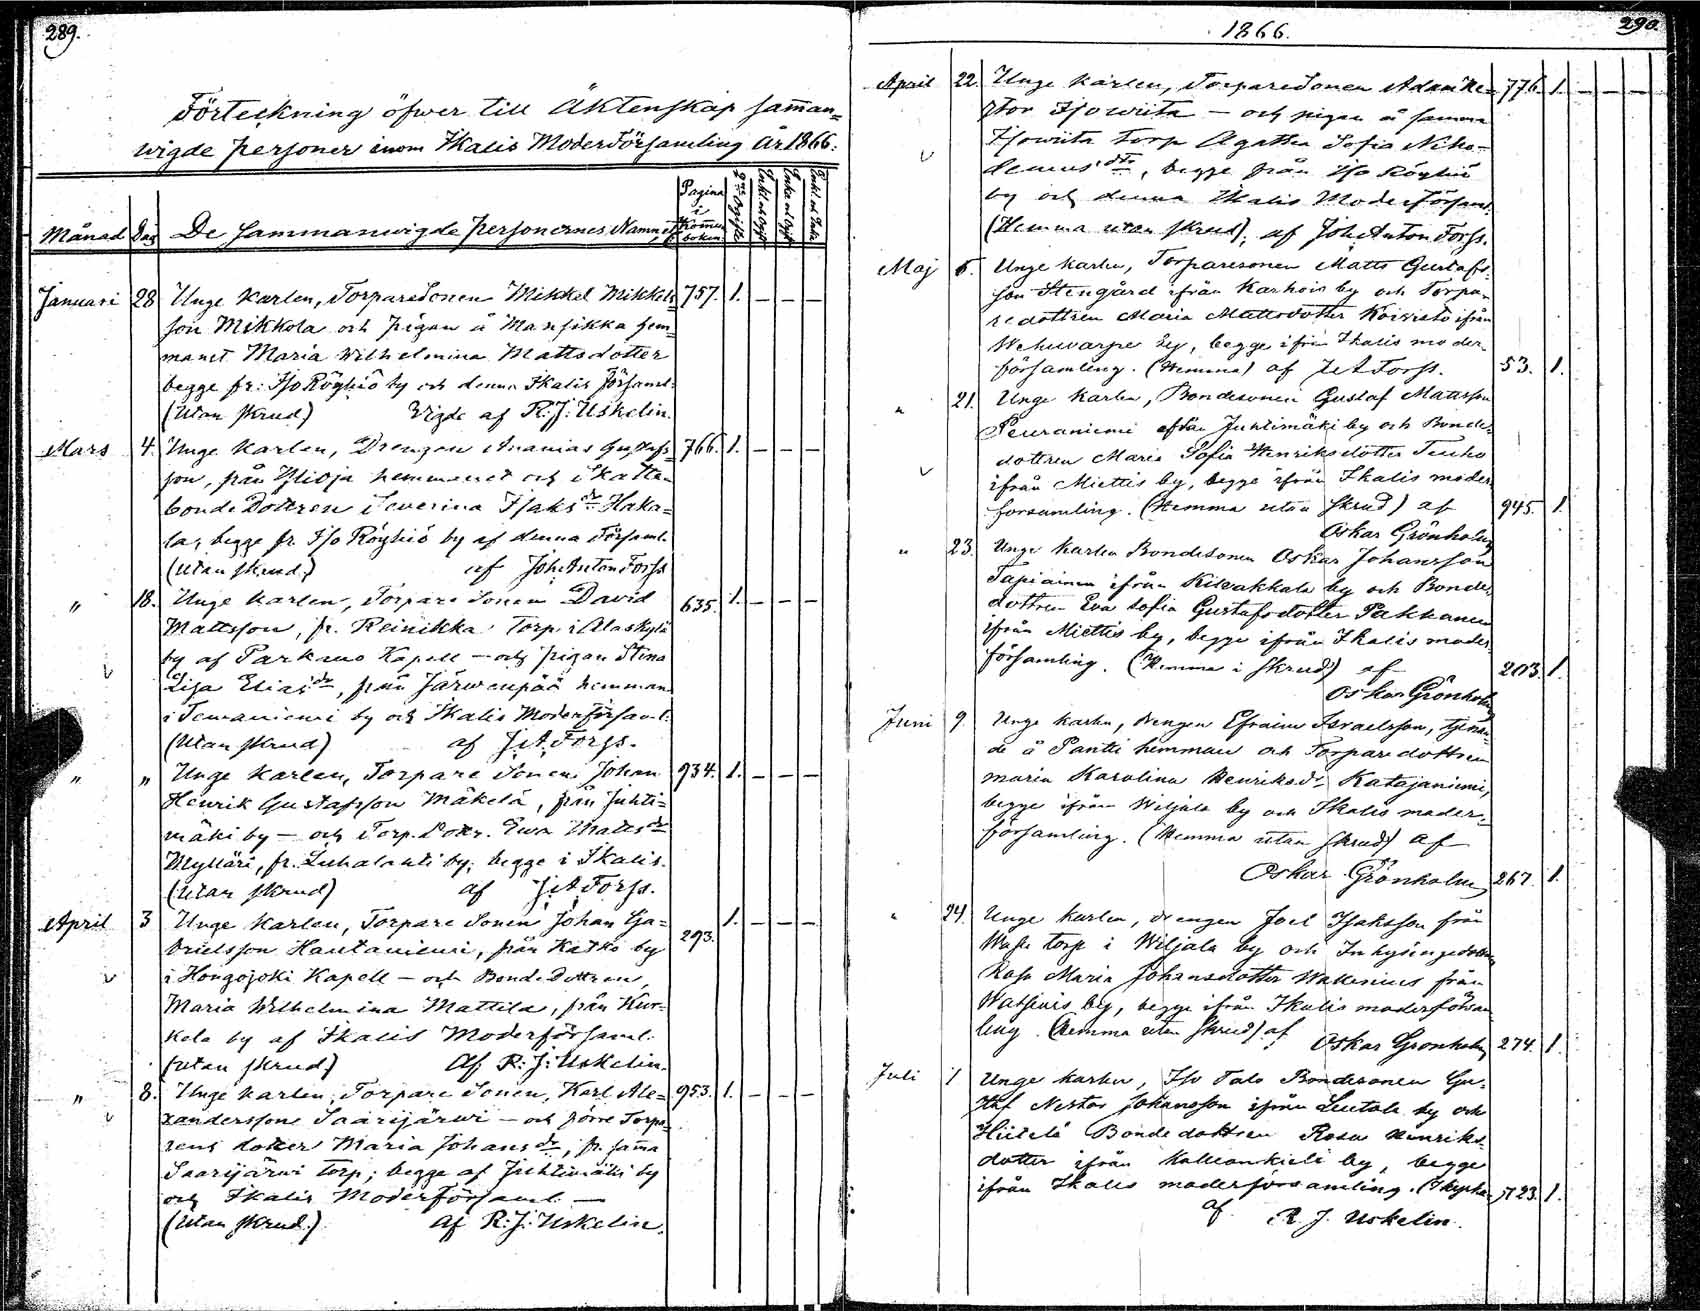 289.
Förteckning öfwer till Äktenskap samman=
wigde personer inom Ikalis ModerFörsamling År 1866.
Månad Dag De Sammanwigde personernes Namn, Pagina i boken
Januari 28 Unge Karlen, TorpareSonen Mikkel Mikkels= 757. 1. — — —
son Mikkola och pigan å Mansikka hem=
manet Maria Wilhelmina Mattsdotter
begge fr: Iso Röyhiö by och denna Ikalis Församl:
(Utan skrud) Vigde af R: J: Uskelin.
Mars 4. Unge Karlen, Drengen Ananias Gustafs= 766. 1. — — —
son, från Ylioja hemmanet och Skatte
bonde Dottren Severina Isaks dr Haka=
la, begge fr. Iso Röyhiö by af denna Församl.
(Utan skrud.) af Joh: Anton Forss
" 18. Unge Karlen, Torpare Sonen David 635. 1. — — —
Mattsson, fr. Reinikka Torp i Alaskylä
by af Parkano Kapell — och pigan Stina
Lisa Elias dr, från Järwenpää hemman
i Temaniemi by och Ikalis ModerFörsaml:
(Utan skrud) af J: A: Forss.
" " Unge Karlen, Torpare Sonen Johan 934. 1. — — —
Henrik Gustafsson Mäkelä, från Juhti=
mäki by — och Torp. Dottr. Ewa Matts dr
Mylläri, fr. Luhalahti by, begge i Ikalis.
(Utan skrud) af J: A: Forss.
April 3 Unge Karlen, Torpare Sonen Johan Ga= 293. 1. — — —
brielsson Hautaniemi, från Katko by
i Hongojoki Kapell — och BondeDottren
Maria Wilhelmina Mattila, från Kur=
kela by af Ikalis Moderförsaml.
(utan skrud) Af R: J: Uskelin.
" 8. Unge Karlen, Torpare Sonen, Karl Ale= 953. 1. — — —
xandersson Saarijärwi — och förre Torpa=
rens dotter Maria Johans dr, fr. samma
Saarijärwi Torp; begge af Juhtimäki by
och Ikalis ModerFörsaml. —
(Utan skrud.) af R: J: Uskelin.
1866.
290.
April 22. Unge Karlen, TorpareSonen Adam Ne= 776. 1. — — — —
stor Isowiita — och pigan å samma
Isowiita Torp Agatha Sofia Niko=
demus dr, begge från Iso Röyhiö
by och denna Ikalis ModerFörsaml.
(Hemma utan skrud); af Joh: Anton Forss.
Maj 6. Unge karlen, Torparesonen Matts Gustafs=
son Stengård ifrån Karhois by och Torpa=
redottren Maria Mattsdotter Koivisto ifrån
Wehuvarpe by, begge ifrån Ikalis moder=
församling. (Hemma) af J A Forss. 53. 1.
" 21. Unge karlen, Bondesonen Gustaf Mattsson
Peuraniemi ifrån Juhtimäki by och Bonde=
dottren Maria Sofia Henriksdotter Teuho
ifrån Miettis by, begge ifrån Ikalis moder
församling. (Hemma utan skrud) af 945. 1.
Oskar Grönholm
" 23. Unge karlen Bondesonen Oskar Johansson
Tapiainen ifrån Kilvakkala by och Bonde=
dottren Eva Sofia Gustafsdotter Pakkanen
ifrån Miettis by, begge ifrån Ikalis moder
församling. (Hemma i skrud) af 203. 1.
Oskar Grönholm
Juni 9. Unge karlen, drengen Efraim Israelsson, tjenan=
de å Pantti hemman och Torparedottren
Maria Karolina Henriksdr Katajaniemi,
begge ifrån Wiljala by och Ikalis moder=
församling. (Hemma utan skrud) af
Oskar Grönholm 267. 1.
" 24. Unge karlen, drengen Joel Isaksson från
torp i Wiljala by och Inhysingedottren
Rosa Maria Johansdotter Wallenius från
by, begge ifrån Ikalis moderförsam
ling (Hemma utan skrud) af
Oskar Grönholm 274. 1.
Juli 1 Unge karlen, Iso Talo Bondesonen Gu=
staf Nestor Johansson ifrån Leutola by och
Bondedottren Rosa Henriks=
dotter ifrån by, begge
ifrån Ikalis moderförsamling. 723. 1.
af R. J. Uskelin.